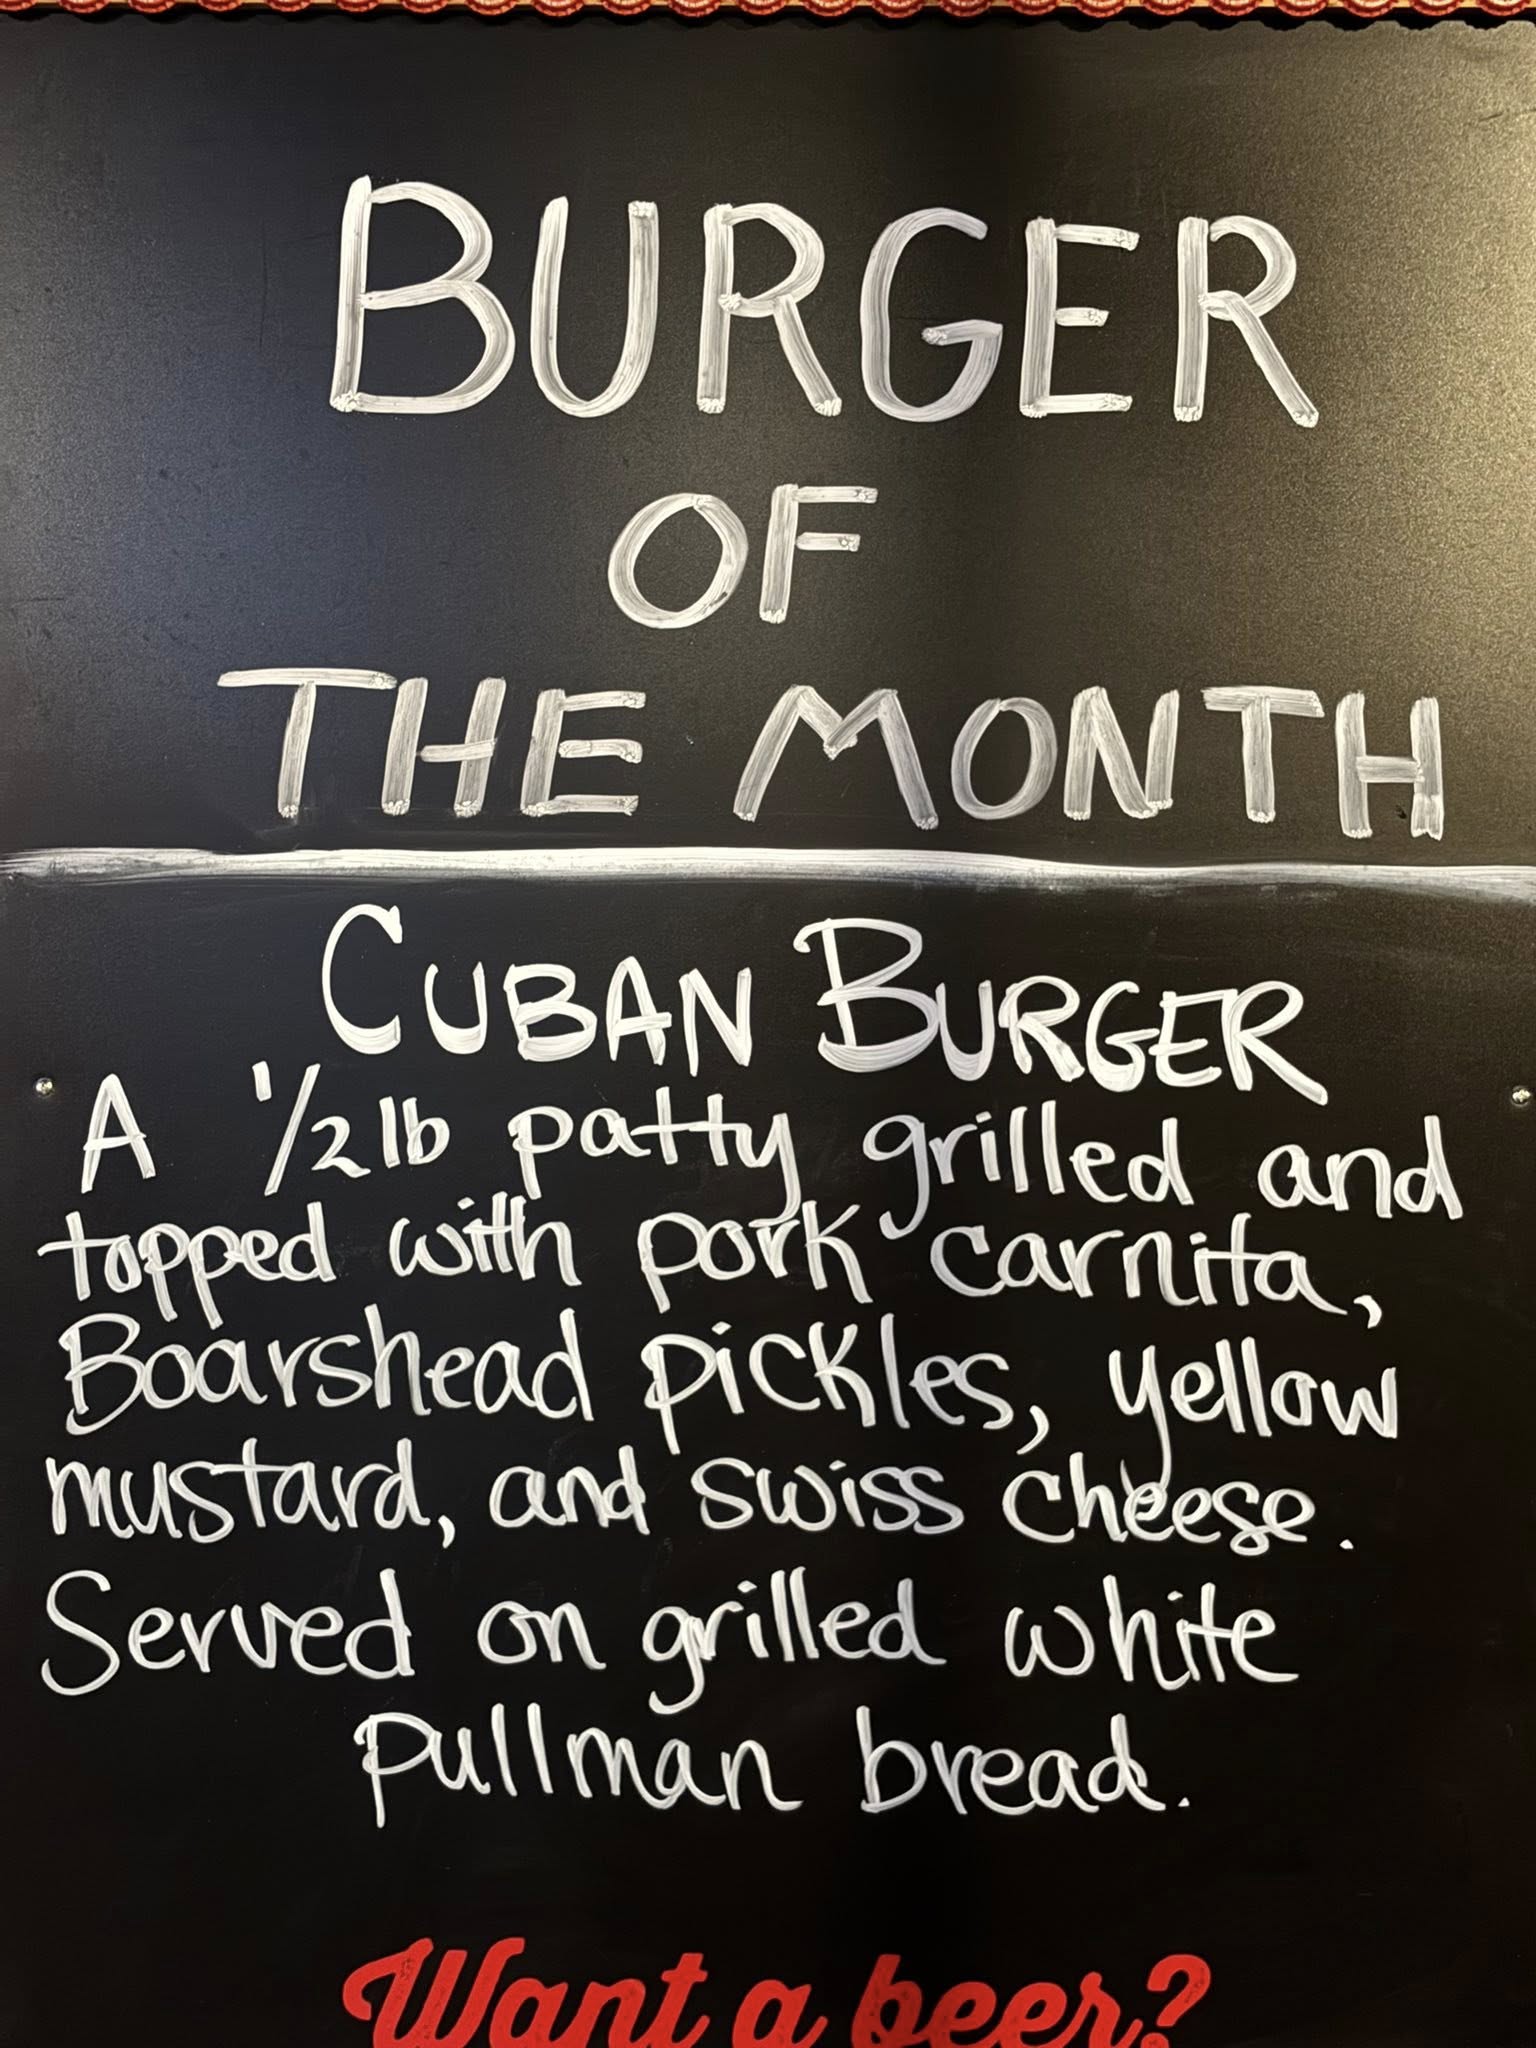 BURGER
OF
THE MONTH
CUBAN BURGER
A 1/2 lb patty grilled and
topped with pork carnita,
Boarshead pickles, yellow
mustard, and swiss cheese.
Served on grilled white
pullman bread.
Want a beer?